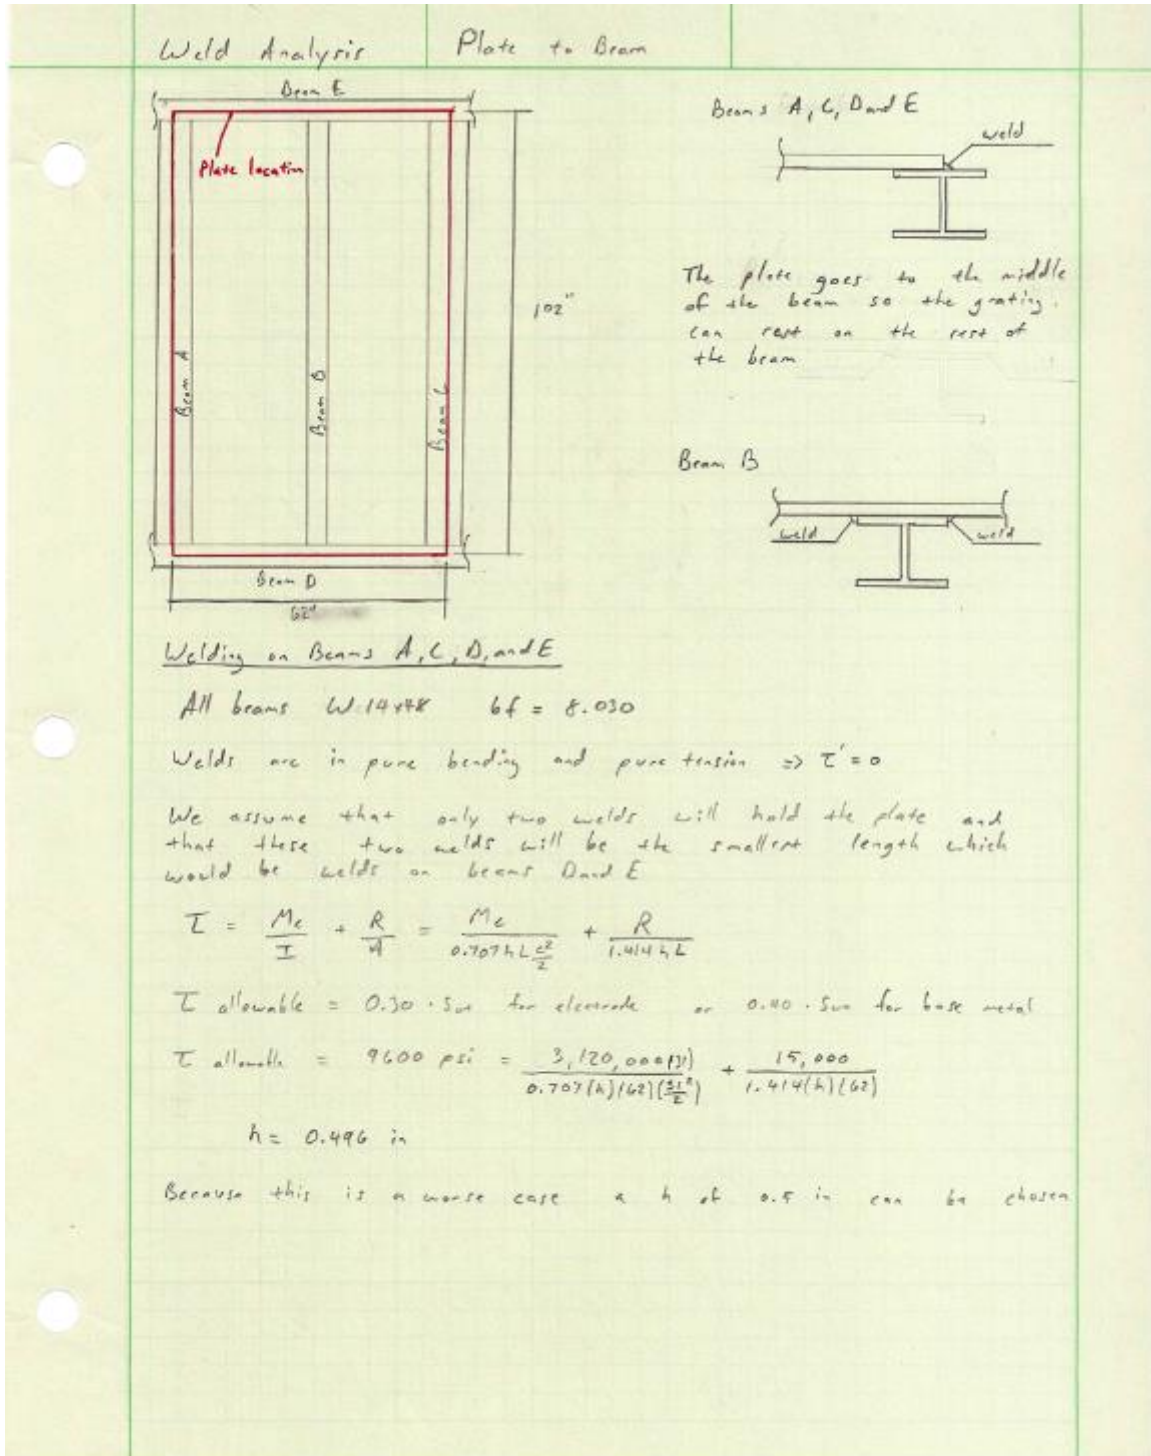 Weld Analysis
Plate to Beam
Beam E
Plate location
Beam A
Beam B
Beam C
102"
Beam D
62"
Beams A, C, D and E
weld
The plate goes to the middle
of the beam so the grating
can rest on the rest of
the beam
Beam B
weld
weld
Welding on Beams A, C, D, and E
All beams W 14x48 bf = 8.030
Welds are in pure bending and pure tension => τ' = 0
We assume that only two welds will hold the plate and
that these two welds will be the smallest length which
would be welds on beams D and E
τ = Mc/I + R/A = Mc/(0.707 h L c²/2) + R/(1.414 h L)
τ allowable = 0.30 · Sut for electrode or 0.40 · Sut for base metal
τ allowable = 9600 psi = 3,120,000(31)/(0.707(h)(62)(31²/2)) + 15,000/(1.414(h)(62))
h = 0.496 in
Because this is a worse case a h of 0.5 in can be chosen